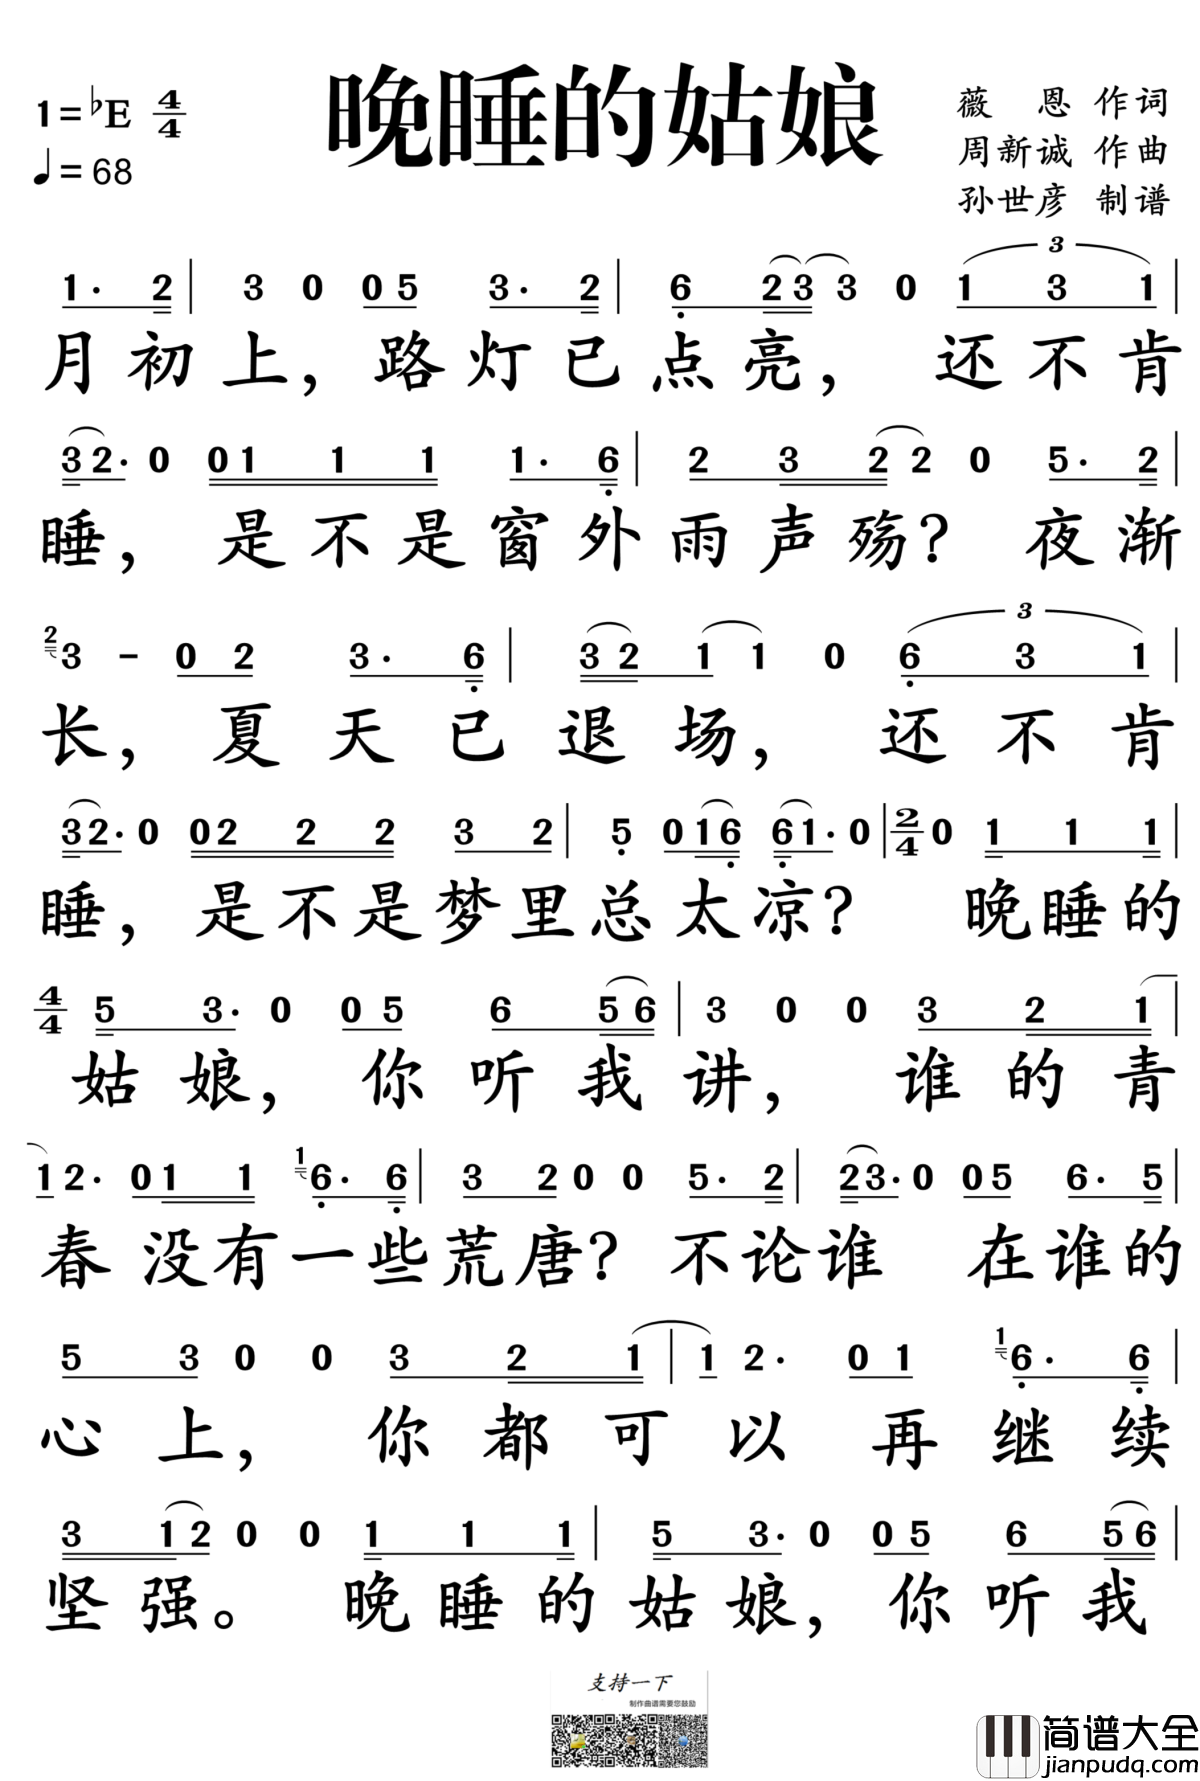 晚睡的姑娘
1=♭E 4/4
♩=68
薇 恩 作词
周新诚 作曲
孙世彦 制谱
1· 2 | 3 0 0 5 3· 2 | 6 2 3 3 0 1 3 1 |
月初上，路灯已点亮， 还不肯
3 2· 0 0 1 1 1 1· 6 | 2 3 2 2 0 5· 2 |
睡， 是不是窗外雨声殇？ 夜渐
2 3 - 0 2 3· 6 | 3 2 1 1 0 6 3 1 |
长，夏天已退场， 还不肯
3 2· 0 0 2 2 2 3 2 | 5 0 1 6 6 1· 0 | 2/4 0 1 1 1 |
睡，是不是梦里总太凉？ 晚睡的
4/4 5 3· 0 0 5 6 5 6 | 3 0 0 3 2 1 |
姑娘， 你听我讲， 谁的青
1 2· 0 1 1 1 6· 6 | 3 2 0 0 5· 2 | 2 3· 0 0 5 6· 5 |
春没有一些荒唐？不论谁 在谁的
5 3 0 0 3 2 1 | 1 2· 0 1 1 6· 6 |
心上， 你都可以再继续
3 1 2 0 0 1 1 1 | 5 3· 0 0 5 6 5 6 |
坚强。 晚睡的姑娘，你听我
支持一下
制作曲谱需要您鼓励
简谱大全
jianpudq.com